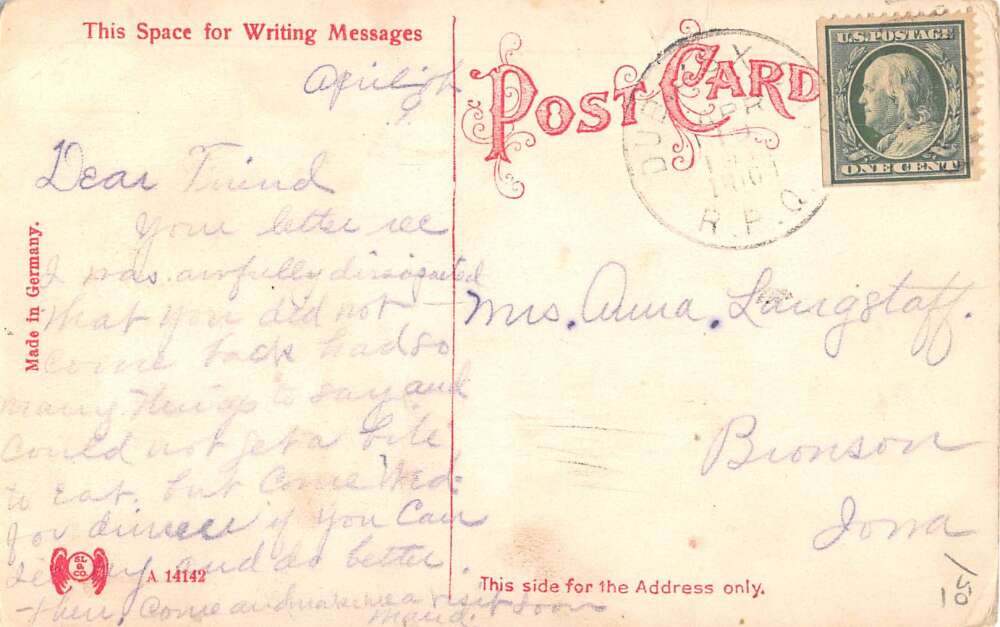 This Space for Writing Messages
POST CARD
U.S. POSTAGE
ONE CENT
APR
R.P.O.
Dear Friend
Your letter rec
I was awfully
that you did not
Come back had so
many things to say and
Could not get a bite
to Eat. but Come Wed.
for dinner if you Can
and do better.
then Come and make me a visit soon
Maud.
Made in Germany.
SL & CO.
A 14142
Mrs. Anna. Langstaff.
Bronson
Iowa
This side for the Address only.